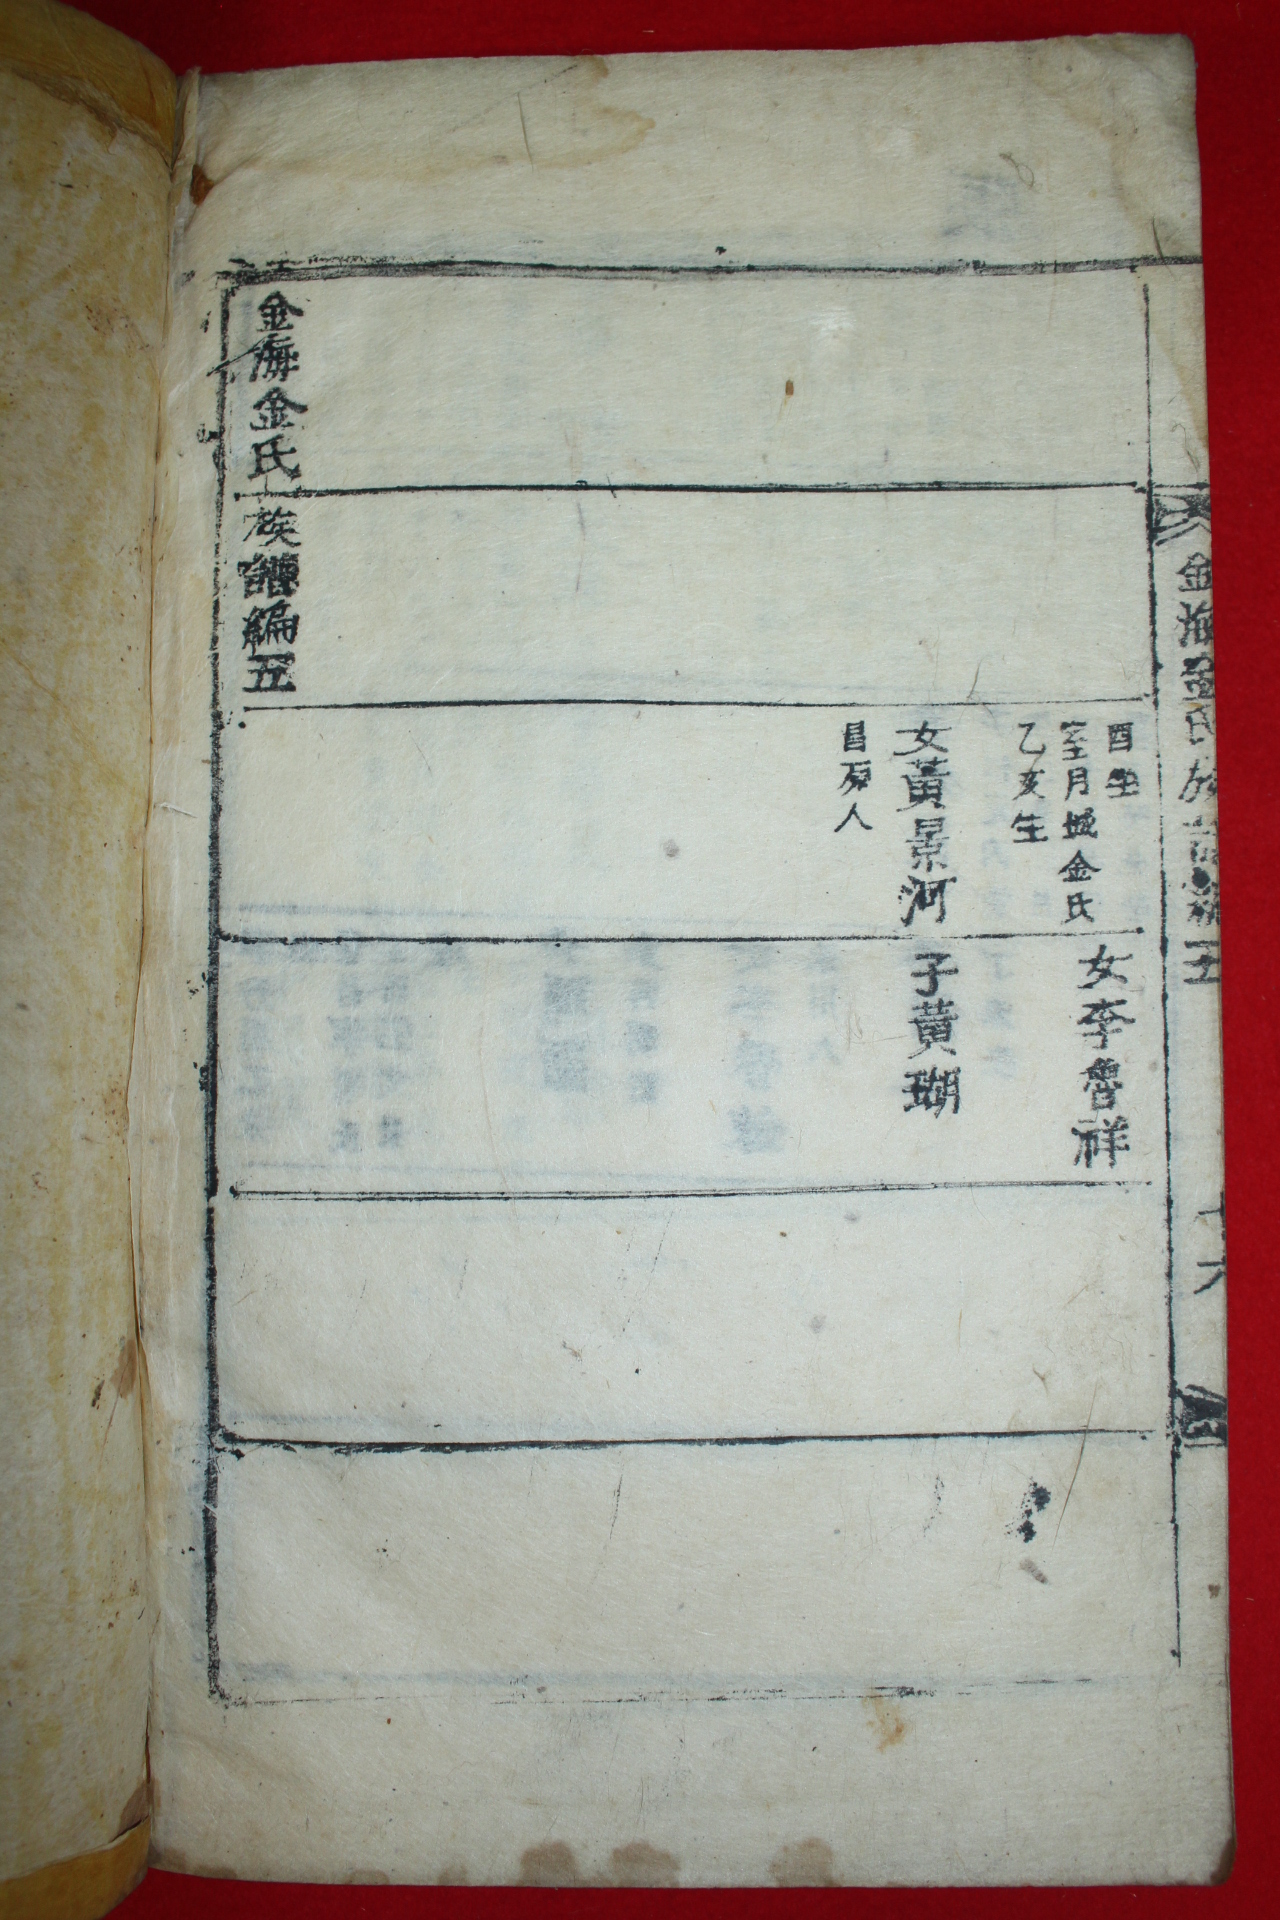 金海金氏族譜編五
十六
酉生
室月城金氏
乙亥生
女黃景河
昌原人
女李魯祥
子黃瑚
金海金氏族譜編五